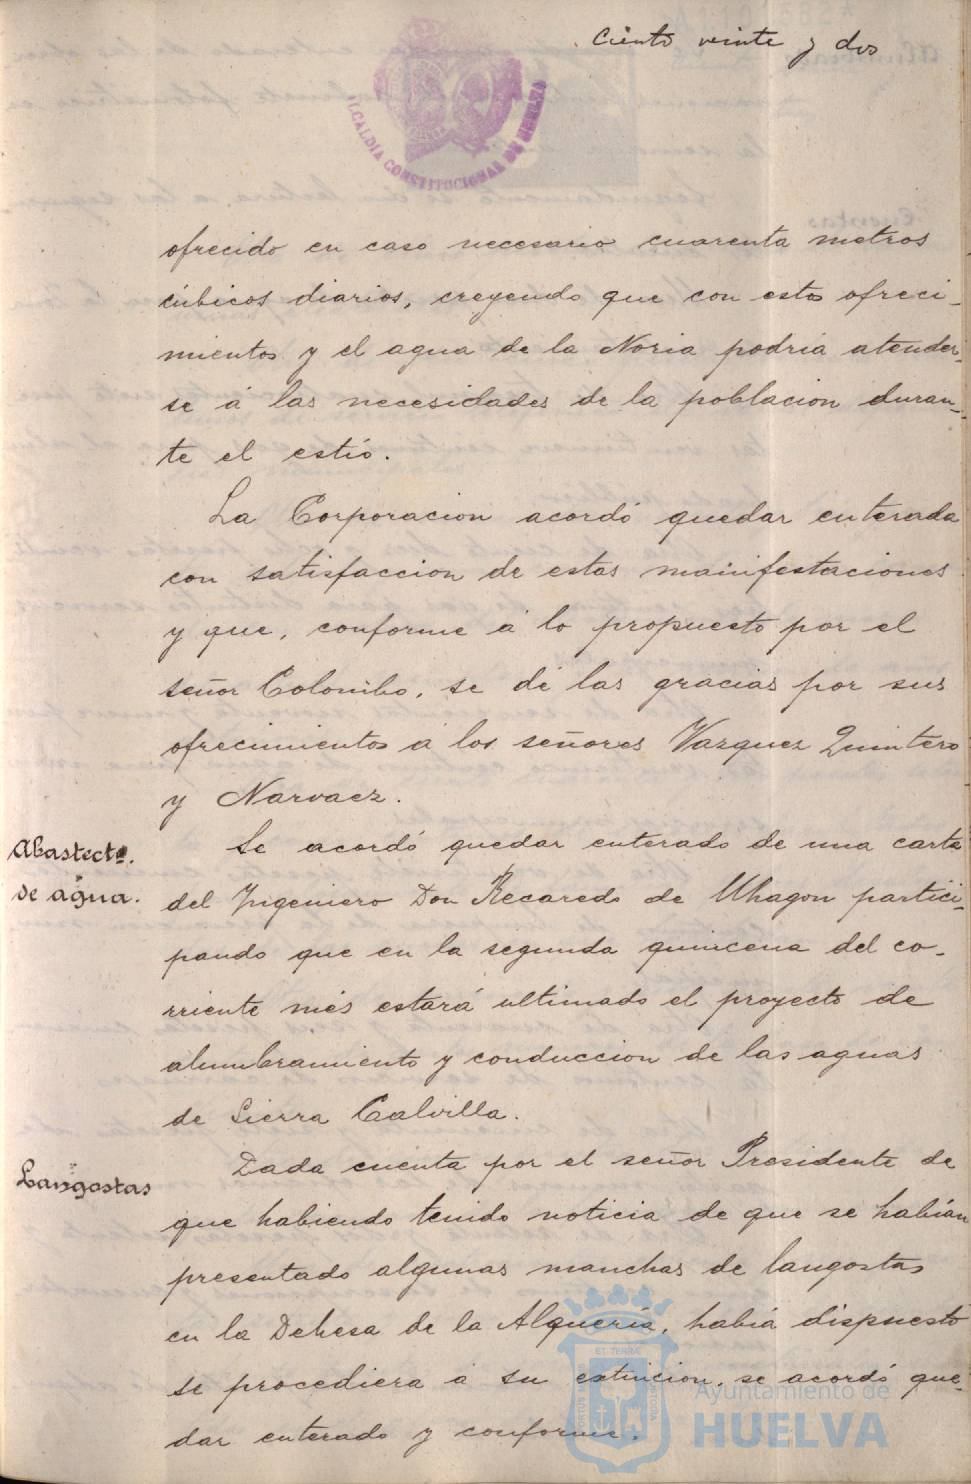 Ciento veinte y dos
ALCALDIA CONSTITUCIONAL DE HUELVA
ofrecido en caso necesario cuarenta metros
cúbicos diarios, creyendo que con estos ofreci-
mientos y el agua de la Noria podria atender-
se á las necesidades de la poblacion duran-
te el estió.
La Corporacion acordó quedar enterada
con satisfaccion de estas manifestaciones
y que, conforme á lo propuesto por el
señor Colombo, se dé las gracias por sus
ofrecimientos á los señores Vazquez Quintero
y Narvaez.
Abastectº.
de agua.
Se acordó quedar enterado de una carta
del Ingeniero Don Recaredo de Uhagon partici-
pando que en la segunda quincena del co-
rriente més estará ultimado el proyecto de
alumbramiento y conduccion de las aguas
de Sierra Calvilla.
Langostas
Dada cuenta por el señor Presidente de
que habiendo tenido noticia de que se habían
presentado algunas manchas de langostas
en la Dehesa de la Alquería, había dispuesto
se procediera á su extincion, se acordó que-
dar enterado y conforme.
Ayuntamiento de
HUELVA